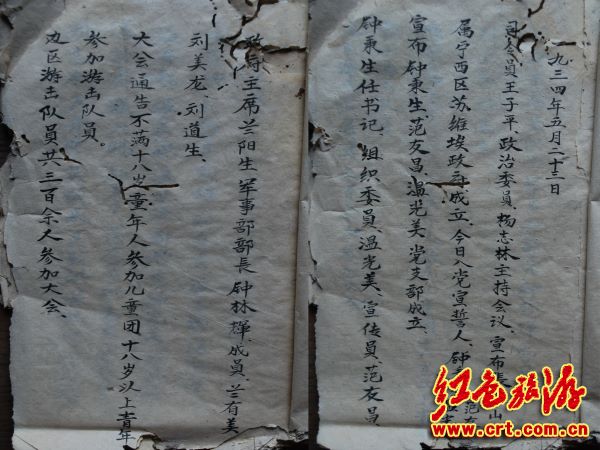 一九三四年五月二十二日
司令员王子平、政治委员、杨志林主持会议、宣布長 山
属宁西区苏维埃政府成立、今日入党宣誓人、钟
宣布钟秉生、范友昌、温光美、党支部成立、
钟秉生任书记、组织委员、温光美、宣传员、范友昌、
主席兰阳生 军事部部長 钟林輝、成员、兰有美
刘美龙、刘道生、
大会通告不满十八岁童年人参加儿童团 十八岁以上青年
参加游击队员。
边区游击队员共三百余人参加大会、
红色旅游
www.crt.com.cn